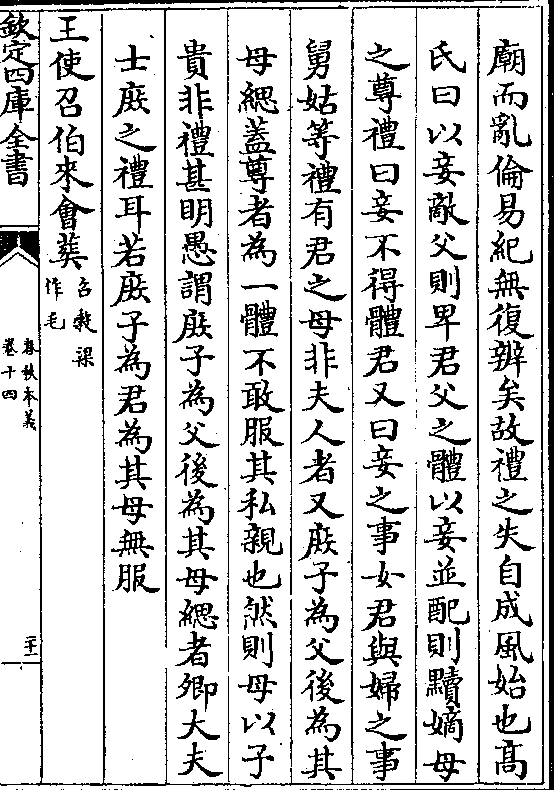 廟而亂倫易紀無復辨矣故禮之失自成風始也髙
氏曰以妾敵父則卑君父之體以妾並配則黷嫡母
之尊禮曰妾不得體君又曰妾之事女君與婦之事
舅姑等禮有君之母非夫人者又庶子為父後為其
母緦蓋尊者為一體不敢服其私親也然則母以子
貴非禮甚明愚謂庶子為父後為其母緦者卿大夫
士庶之禮耳若庶子為君為其母無服
王使召伯來會葬召穀梁作毛
欽定四庫全書
春秋本義
卷十四
二十一